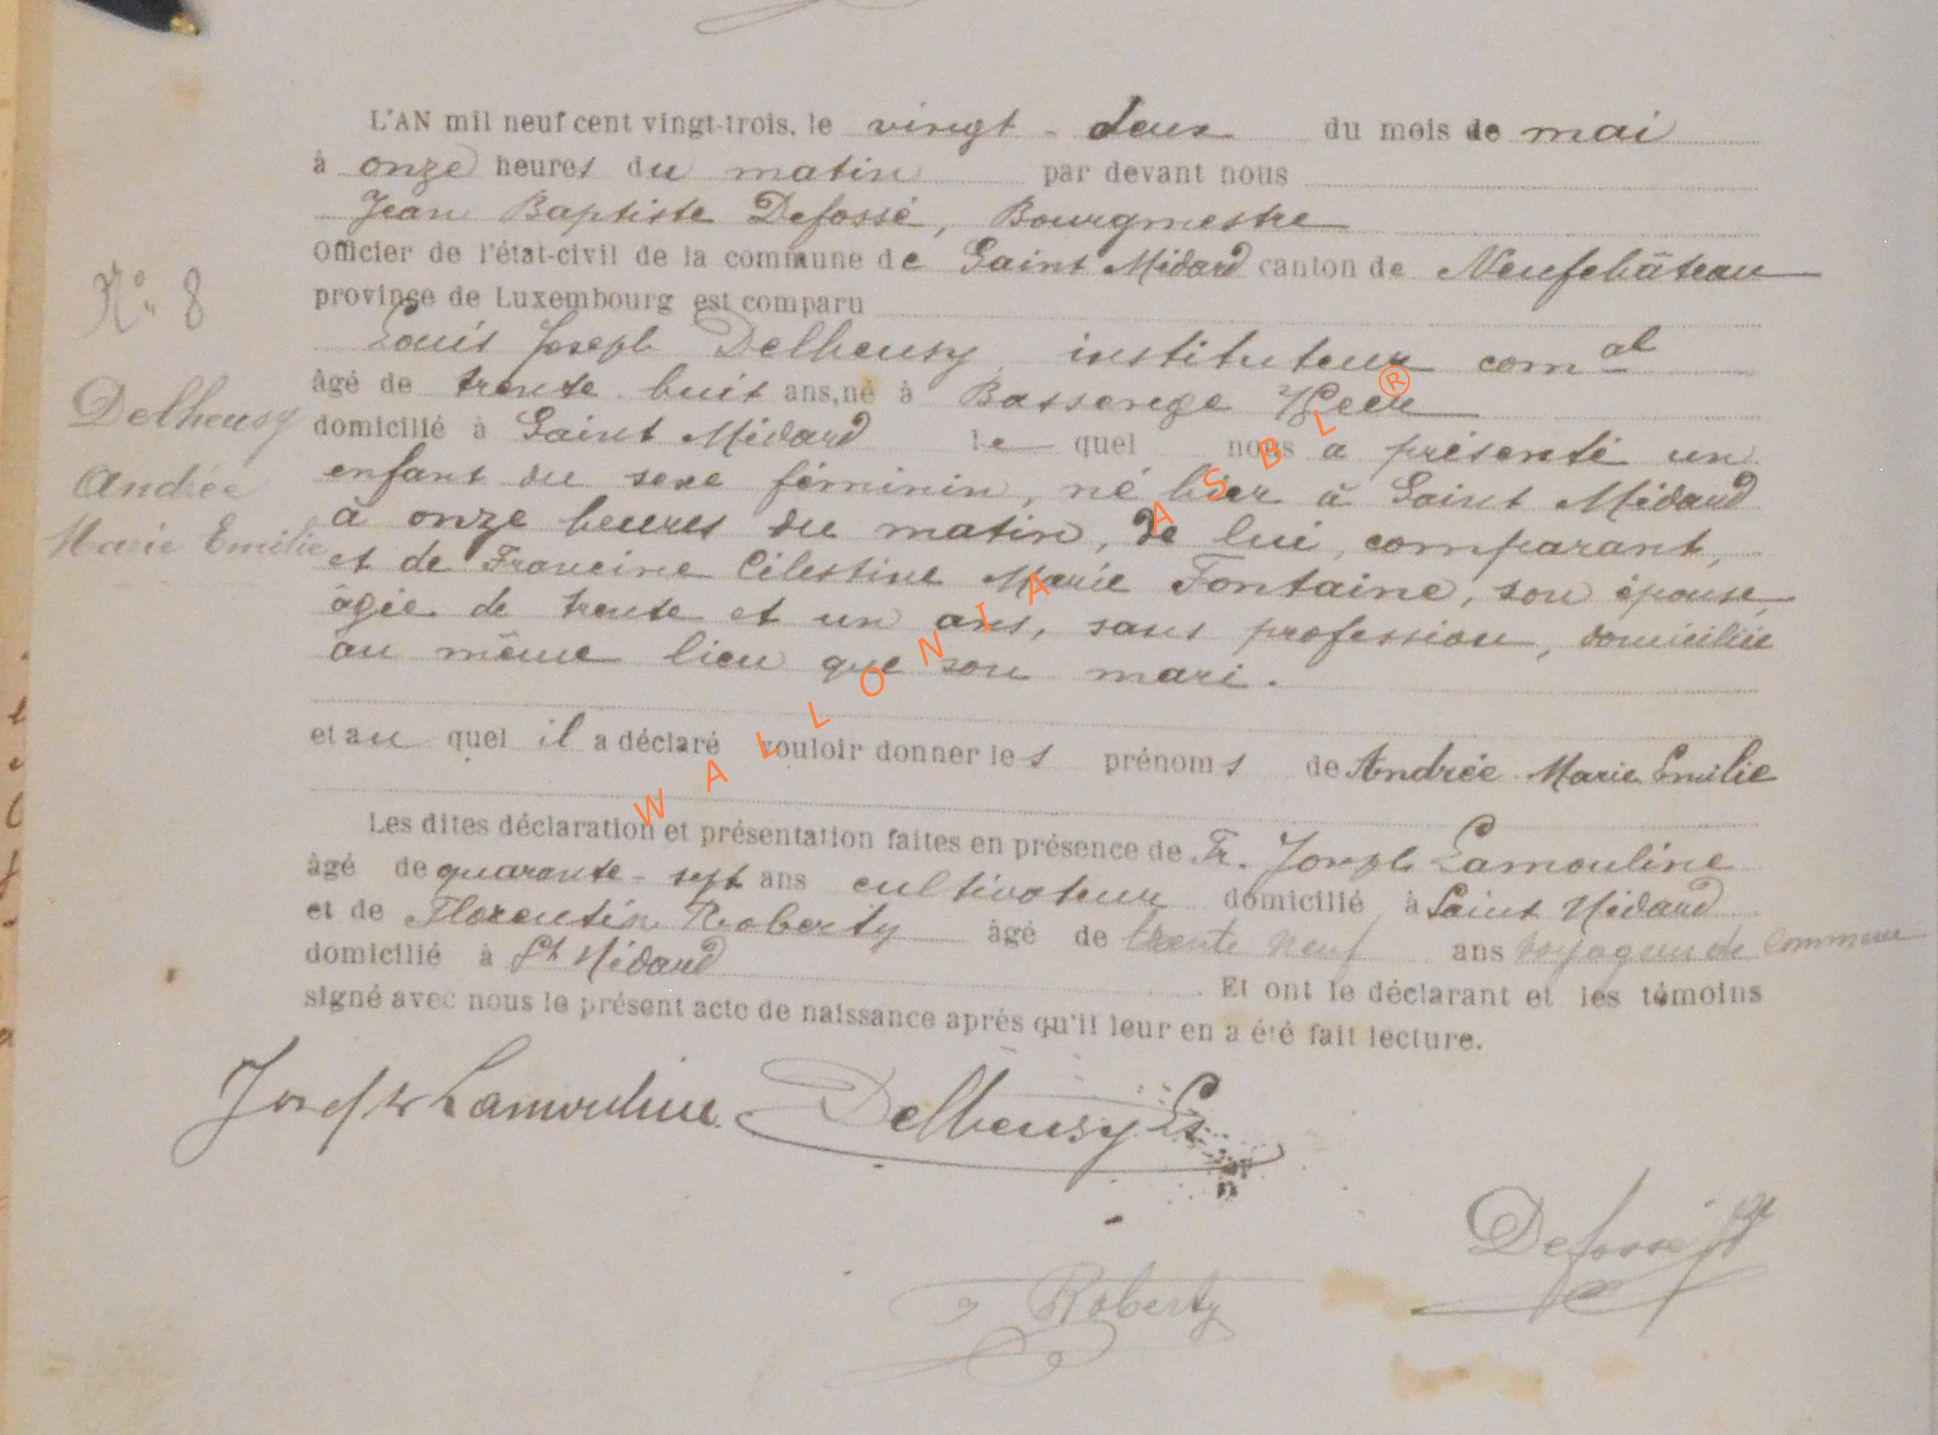 L'AN mil neuf cent vingt-trois, le vingt-deux du mois de mai
à onze heures du matin par devant nous
Jean Baptiste Defossé, Bourgmestre
Officier de l'état-civil de la commune de Saint Médard canton de Neufchâteau
province de Luxembourg est comparu
Louis Joseph Delheusy, instituteur com^al
âgé de trente huit ans, né à Bassenge
domicilié à Saint Médard le quel nous a présenté un
enfant du sexe féminin, né hier à Saint Médard
à onze heures du matin, de lui, comparant,
et de Francine Célestine Marie Fontaine, son épouse,
âgée de trente et un ans, sans profession, domiciliée
au même lieu que son mari.
et au quel il a déclaré vouloir donner les prénoms de Andrée Marie Emilie
Les dites déclaration et présentation faites en présence de Fr. Joseph Lamouline
âgé de quarante-sept ans cultivateur domicilié à Saint Médard
et de Florentin Roberty âgé de trente neuf ans voyageur de Commerce
domicilié à St Médard Et ont le déclarant et les témoins
signé avec nous le présent acte de naissance après qu'il leur en a été fait lecture.
N° 8
Delheusy
Andrée
Marie Emilie
Joseph Lamouline Delheusy Ls
Defossé
Roberty
WALLONIA ASBL®